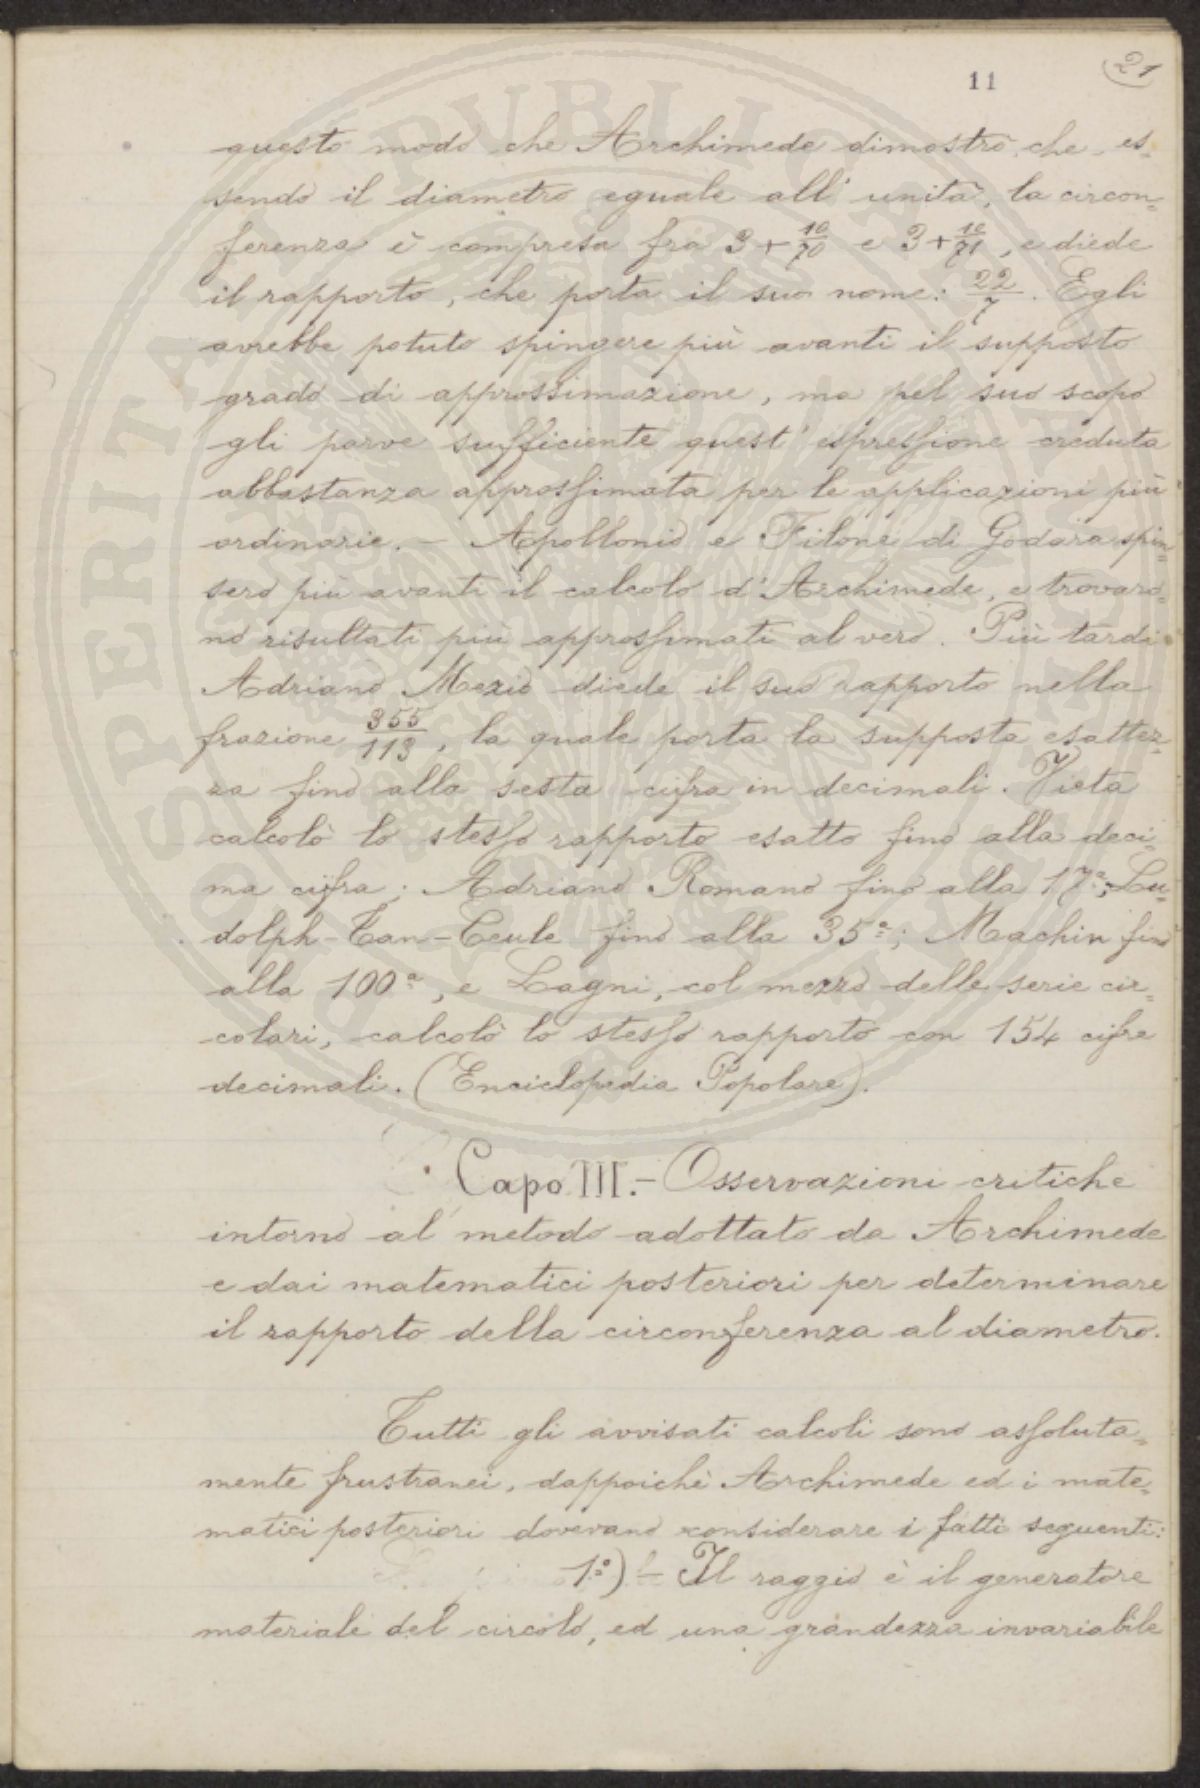 11
21
questo modo che Archimede dimostrò, che es-
sendo il diametro eguale all'unità, la circon=
ferenza è compresa fra 3+10/70 e 3+10/71, e diede
il rapporto, che porta il suo nome: 22/7. Egli
avrebbe potuto spingere più avanti il supposto
grado di approssimazione, ma pel suo scopo
gli parve sufficiente quest'espressione creduta
abbastanza approssimata per le applicazioni più
ordinarie. – Apollonio e Filone di Godara spin=
sero più avanti il calcolo d'Archimede, e trovaro=
no risultati più approssimati al vero. Più tardi
Adriano Mezio diede il suo rapporto nella
frazione 355/113, la quale porta la supposta esattez=
za fino alla sesta cifra in decimali. Vieta
calcolò lo stesso rapporto esatto fino alla deci=
ma cifra; Adriano Romano fino alla 17ª; Lu=
dolph-Van-Ceule fino alla 35ª; Machin fino
alla 100ª, e Lagni, col mezzo delle serie cir=
colari, calcolò lo stesso rapporto con 154 cifre
decimali. (Enciclopedia Popolare).
Capo III.– Osservazioni critiche
intorno al metodo adottato da Archimede
e dai matematici posteriori per determinare
il rapporto della circonferenza al diametro.
Tutti gli avvisati calcoli sono assoluta=
mente frustranei, dappoichè Archimede ed i mate=
matici posteriori dovevano considerare i fatti seguenti:
1º) – Il raggio è il generatore
materiale del circolo, ed una grandezza invariabile